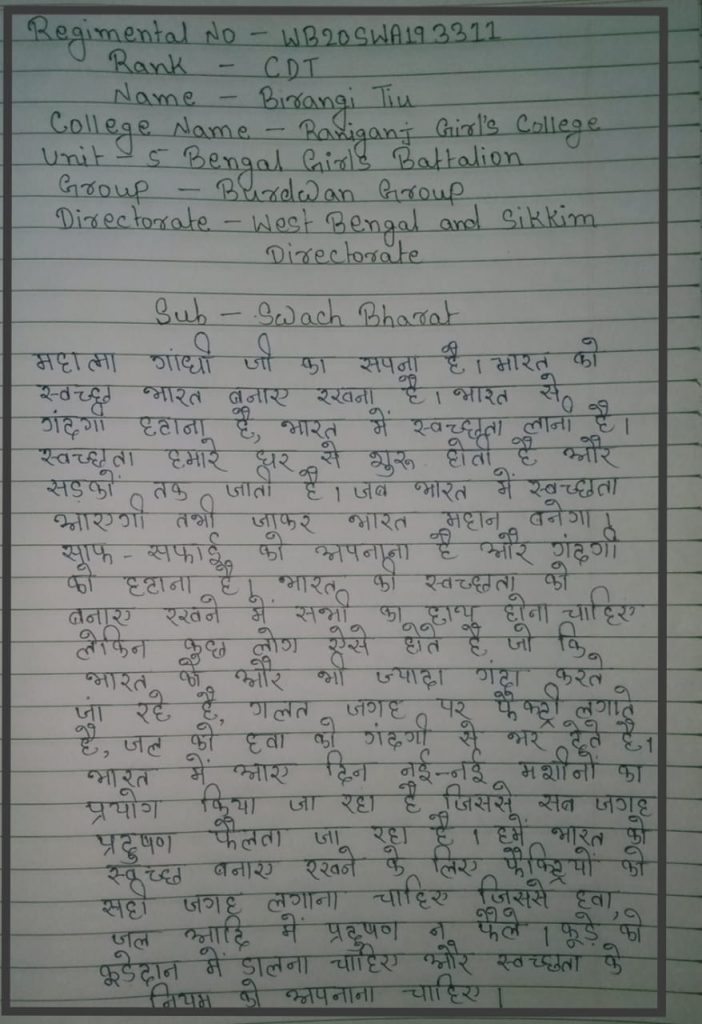 Regimental No - WB20SWA193311
Rank - CDT
Name - Birangi Tiu
College Name - Raniganj Girl's College
Unit - 5 Bengal Girl's Battalion
Group - Burdwan Group
Directorate - West Bengal and Sikkim
Directorate
Sub - Swach Bharat
महात्मा गांधी जी का सपना है। भारत को
स्वच्छ भारत बनाए रखना है। भारत से
गंदगी हटाना है, भारत में स्वच्छता लाना है।
स्वच्छता हमारे घर से शुरू होती है और
सड़कों तक जाती है। जब भारत में स्वच्छता
आएगी तभी जाकर भारत महान बनेगा।
साफ - सफाई को अपनाना है और गंदगी
को हटाना है। भारत की स्वच्छता को
बनाए रखने में सभी का हाथ होना चाहिए
लेकिन कुछ लोग ऐसे होते है जो कि
भारत को और भी ज्यादा गंदा करते
जा रहे है, गलत जगह पर फैक्ट्री लगाते
है, जल को हवा को गंदगी से भर देते है।
भारत में आए दिन नई-नई मशीनों का
प्रयोग किया जा रहा है जिससे सब जगह
प्रदुषण फैलता जा रहा है। हमें भारत को
स्वच्छ बनाए रखने के लिए फैक्ट्रियों को
सही जगह लगाना चाहिए जिससे हवा,
जल आदि में प्रदुषण न फैले। कूड़े को
कूडेदान में डालना चाहिए और स्वच्छता के
नियम को अपनाना चाहिए।